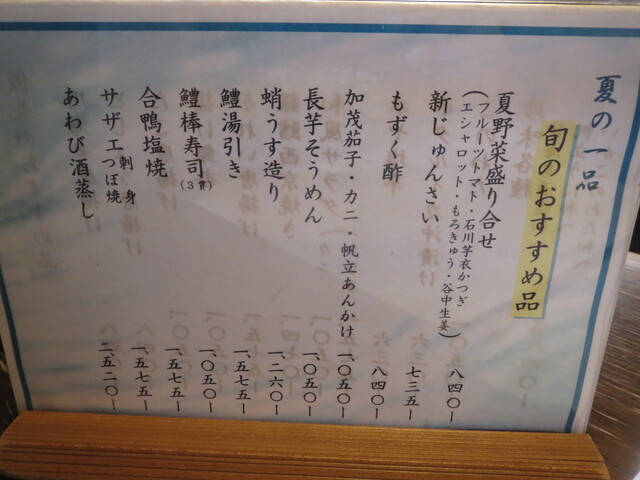 夏の一品
旬のおすすめ品
夏野菜盛り合せ 八四〇ー
(フルーツトマト・石川芋衣かつぎ
エシャロット・もろきゅう・谷中生姜)
新じゅんさい 七三五ー
もずく酢 八四〇ー
加茂茄子・カニ・帆立あんかけ 一、〇五〇ー
長芋そうめん 一、〇五〇ー
蛸うす造り 一、二六〇ー
鱧湯引き 一、五七五ー
鱧棒寿司(3貫) 一、〇五〇ー
合鴨塩焼 一、五七五ー
サザエ 刺身 つぼ焼 一、五七五ー
あわび酒蒸し 二、五二〇ー